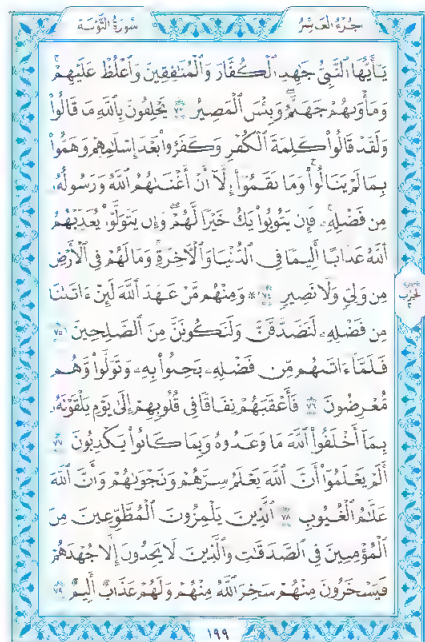 سُورَةُ التَّوْبَةِ
الجُزْءُ العَاشِرُ
يَٰٓأَيُّهَا ٱلنَّبِىُّ جَٰهِدِ ٱلْكُفَّارَ وَٱلْمُنَٰفِقِينَ وَٱغْلُظْ عَلَيْهِمْ ۚ
وَمَأْوَىٰهُمْ جَهَنَّمُ ۖ وَبِئْسَ ٱلْمَصِيرُ ٧٣ يَحْلِفُونَ بِٱللَّهِ مَا قَالُوا۟
وَلَقَدْ قَالُوا۟ كَلِمَةَ ٱلْكُفْرِ وَكَفَرُوا۟ بَعْدَ إِسْلَٰمِهِمْ وَهَمُّوا۟
بِمَا لَمْ يَنَالُوا۟ ۚ وَمَا نَقَمُوٓا۟ إِلَّآ أَنْ أَغْنَىٰهُمُ ٱللَّهُ وَرَسُولُهُۥ
مِن فَضْلِهِۦ ۚ فَإِن يَتُوبُوا۟ يَكُ خَيْرًا لَّهُمْ ۖ وَإِن يَتَوَلَّوْا۟ يُعَذِّبْهُمُ
ٱللَّهُ عَذَابًا أَلِيمًا فِى ٱلدُّنْيَا وَٱلْءَاخِرَةِ ۚ وَمَا لَهُمْ فِى ٱلْأَرْضِ
مِن وَلِىٍّ وَلَا نَصِيرٍ ٧٤ ۞ وَمِنْهُم مَّنْ عَٰهَدَ ٱللَّهَ لَئِنْ ءَاتَىٰنَا
مِن فَضْلِهِۦ لَنَصَّدَّقَنَّ وَلَنَكُونَنَّ مِنَ ٱلصَّٰلِحِينَ ٧٥
فَلَمَّآ ءَاتَىٰهُم مِّن فَضْلِهِۦ بَخِلُوا۟ بِهِۦ وَتَوَلَّوا۟ وَّهُم
مُّعْرِضُونَ ٧٦ فَأَعْقَبَهُمْ نِفَاقًا فِى قُلُوبِهِمْ إِلَىٰ يَوْمِ يَلْقَوْنَهُۥ
بِمَآ أَخْلَفُوا۟ ٱللَّهَ مَا وَعَدُوهُ وَبِمَا كَانُوا۟ يَكْذِبُونَ ٧٧
أَلَمْ يَعْلَمُوٓا۟ أَنَّ ٱللَّهَ يَعْلَمُ سِرَّهُمْ وَنَجْوَىٰهُمْ وَأَنَّ ٱللَّهَ
عَلَّٰمُ ٱلْغُيُوبِ ٧٨ ٱلَّذِينَ يَلْمِزُونَ ٱلْمُطَّوِّعِينَ مِنَ
ٱلْمُؤْمِنِينَ فِى ٱلصَّدَقَٰتِ وَٱلَّذِينَ لَا يَجِدُونَ إِلَّا جُهْدَهُمْ
فَيَسْخَرُونَ مِنْهُمْ ۙ سَخِرَ ٱللَّهُ مِنْهُمْ وَلَهُمْ عَذَابٌ أَلِيمٌ ٧٩
١٩٩